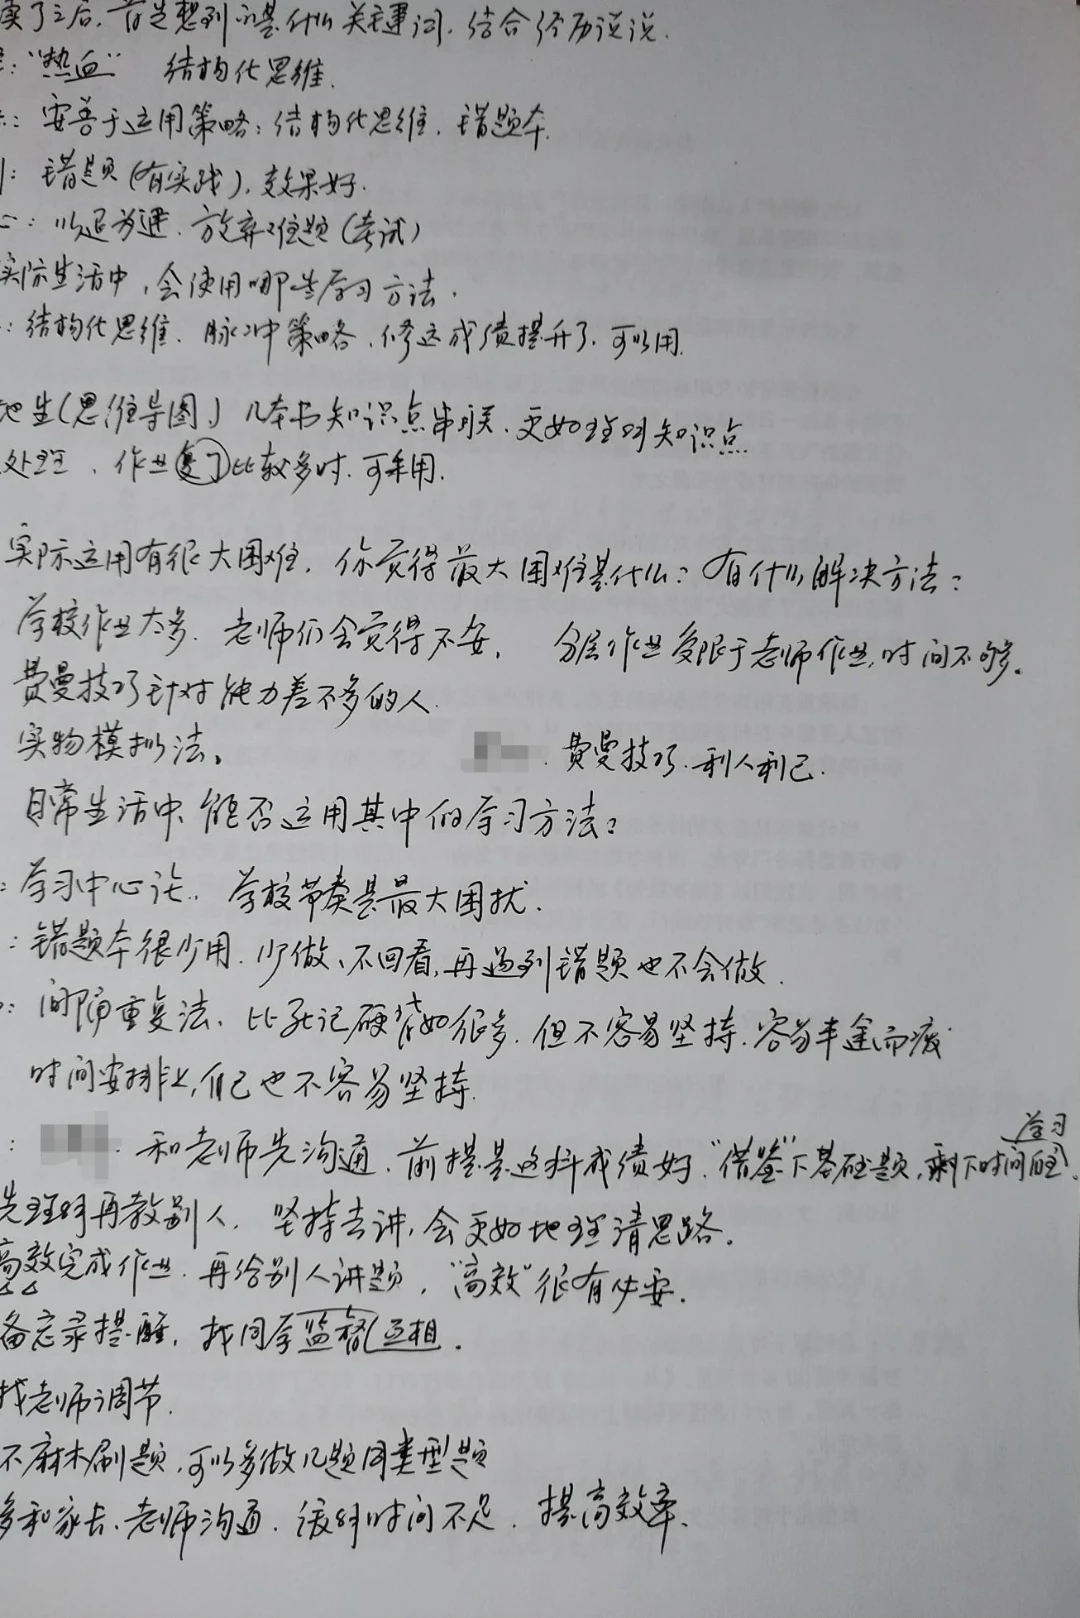 读了之后，首先想到的是什么关键词，结合经历说说.
：“热血” 结构化思维.
：要善于运用策略：结构化思维、错题本.
：错题（有实践），效果好.
：以退为进、放弃难题（考试）
实际生活中，会使用哪些学习方法.
：结构化思维、脉冲策略、修远成绩提升了、可以用.
地生（思维导图）几本书知识点串联、更好理解知识点
处理、作业 比较多时、可采用.
实际运用有很大困难，你觉得最大困难是什么？有什么解决方法？
学校作业太多、老师们会觉得不安， 分层作业受限于老师作业，时间不够。
费曼技巧针对能力差不多的人.
实物模拟法。 . 费曼技巧、利人利己.
日常生活中、能否运用其中的学习方法？
：学习中心论、学校节奏是最大困扰.
：错题本很少用、少做、不回看，再遇到错题也不会做.
：间隔重复法、比死记硬背好很多，但不容易坚持、容易半途而废
时间安排上，自己也不容易坚持.
： . 和老师先沟通、前提是这科成绩好、“借鉴”下基础题，剩下时间 学习
先理解再教别人、坚持去讲，会更好地理清思路。
高效完成作业、再给别人讲题，“高效”很有必要.
备忘录提醒，找同学监督互相.
找老师调节.
不麻木刷题，可以多做几题同类型题
多和家长、老师沟通、缓解时间不足、提高效率、